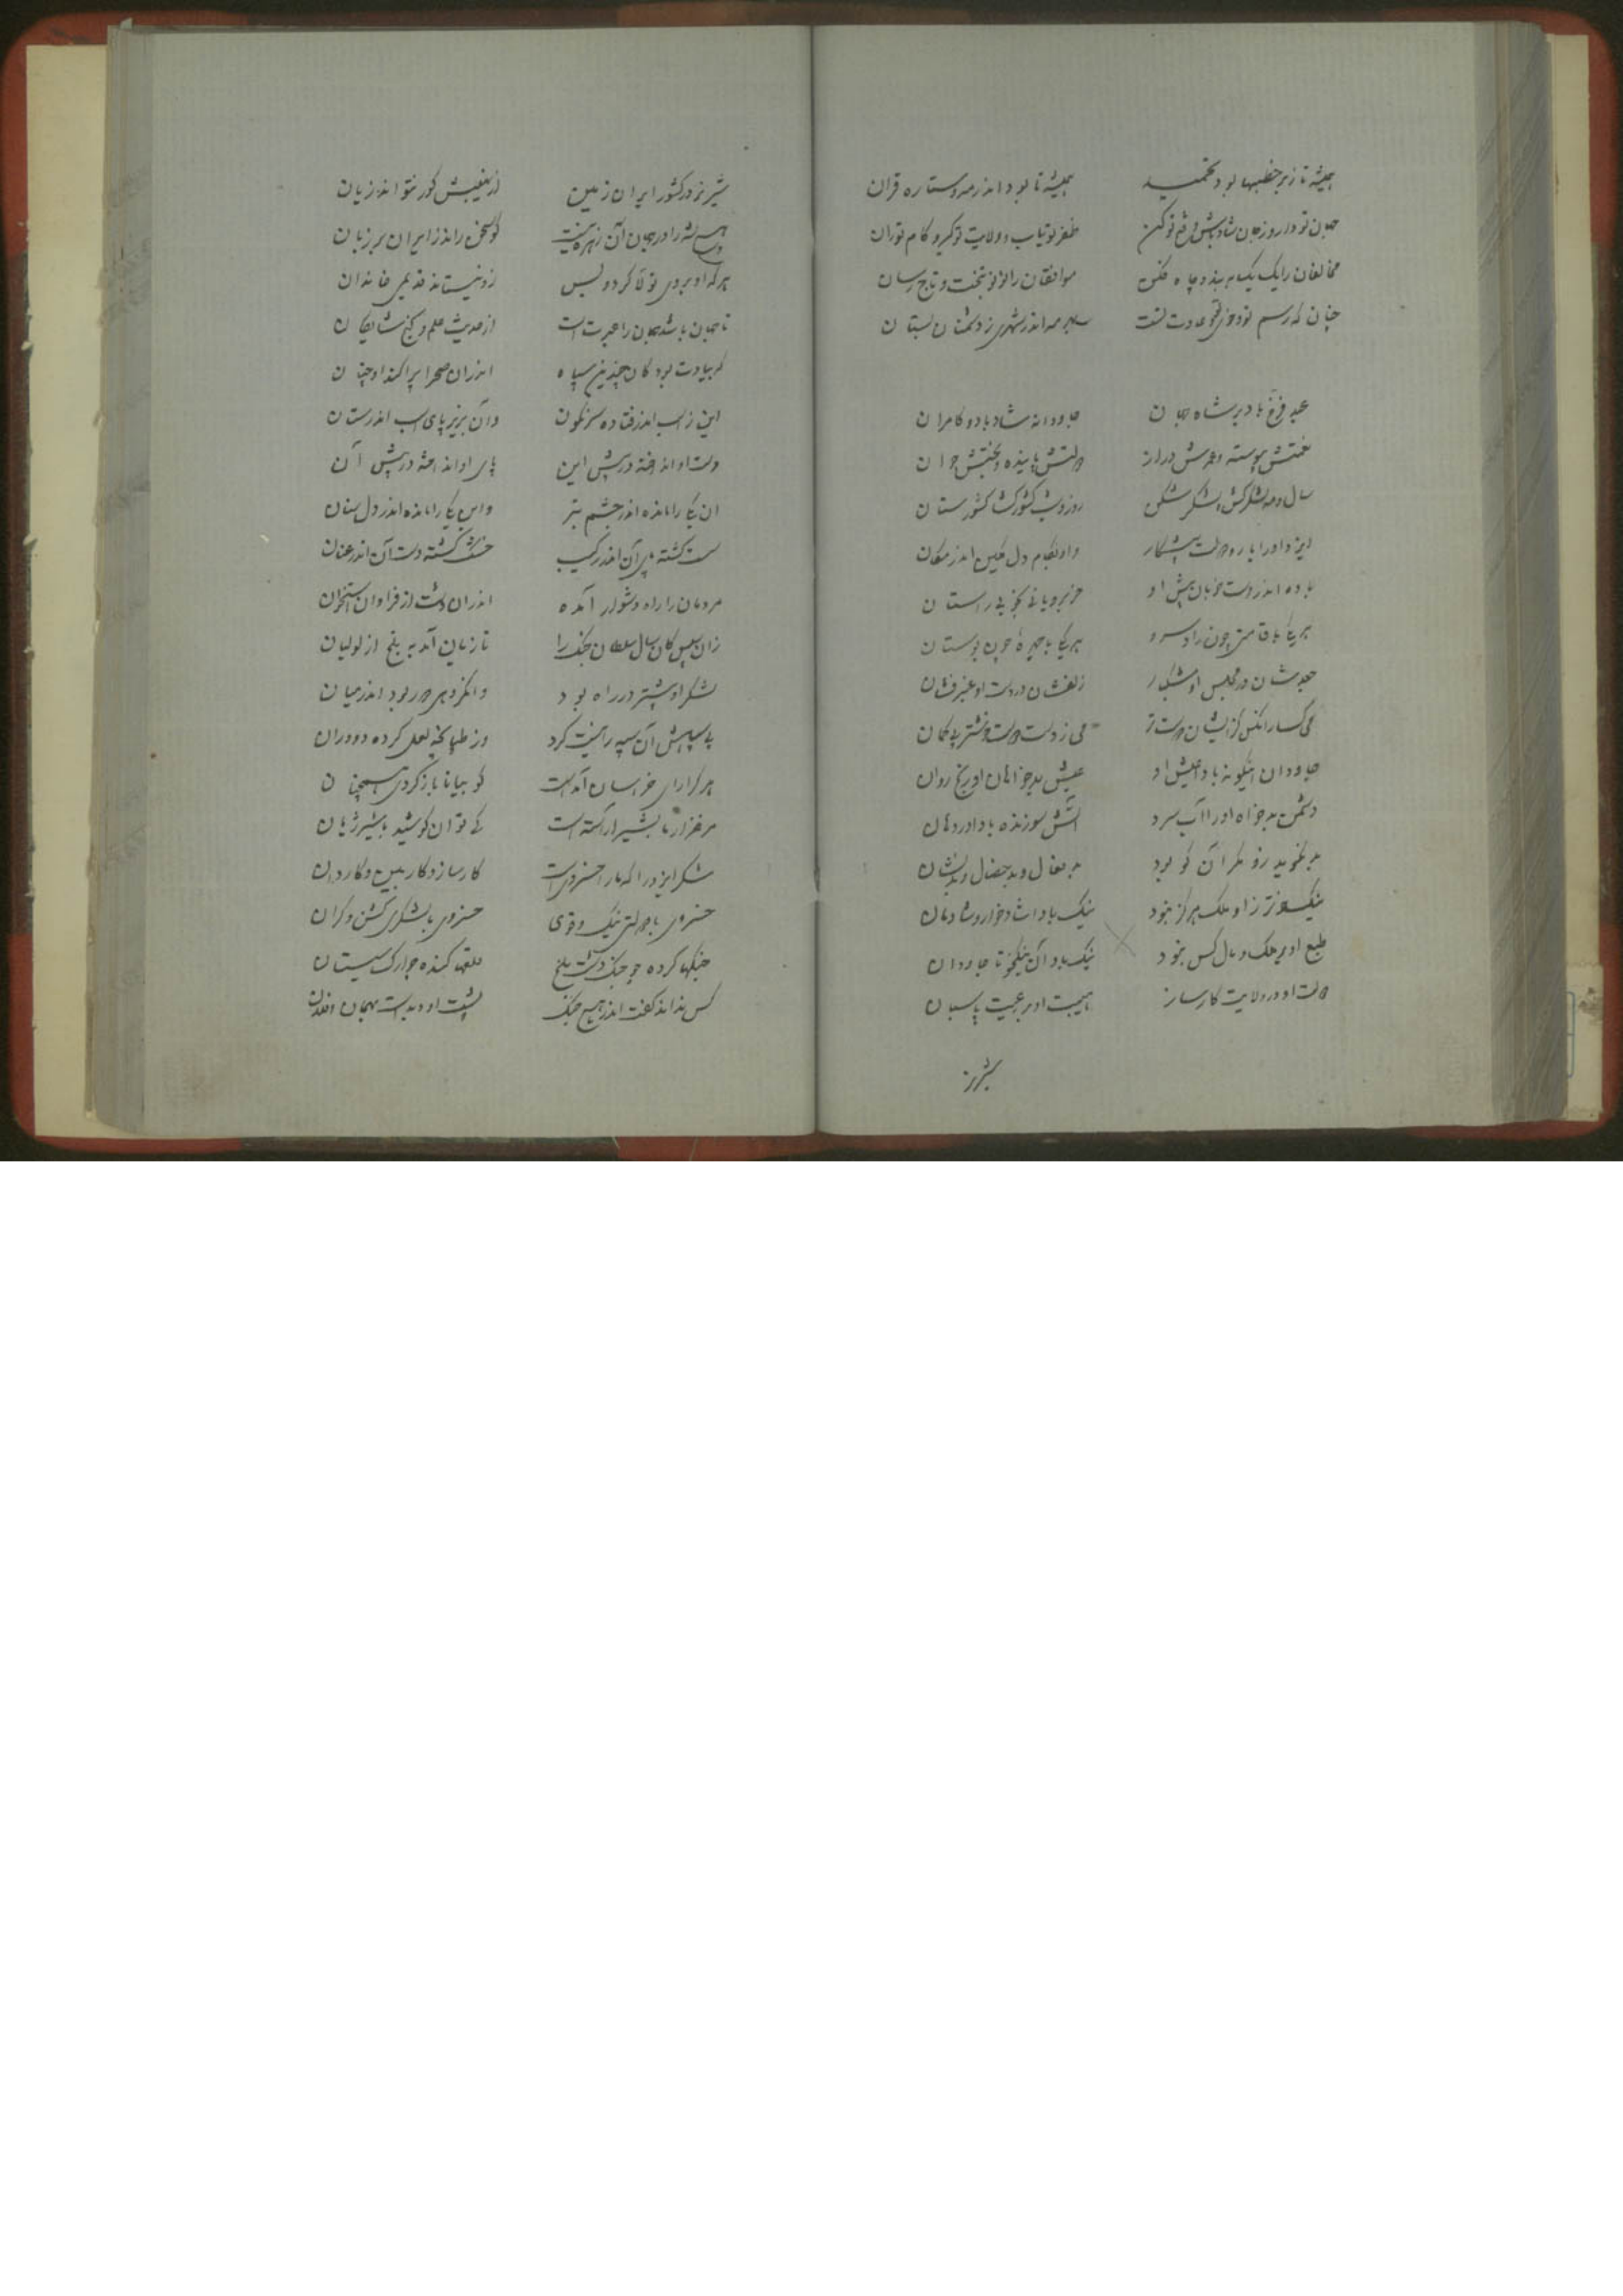 همیشه تا ز بر خطبها بود تحمید همیشه تا بود اندر مه و ستاره قران
جهان تو دار و زمان شاد باش و رنج تو کن ظفر تو یاب و ولایت تو گیر و کام تو ران
مخالفان را یک یک به بند و چاه فکن موافقان را نونو بتخت و تاج رسان
چنان که رسم تو و خوی تو و عادت تست بهر مه اندر شهری ز دشمنان بستان
عید فرخ باد بر شاه جهان جاودانه شاد باد و کامران
نعمتش پیوسته و عمرش دراز دولتش پاینده و بختش جوان
سال و مه لشکرکش و لشکرشکن روز و شب کشورکشا کشورستان
ایزد او را یار و دولت پیشکار واو بکام دل مکین اندر مکان
باده اندر دست خوبان پیش او خوبرویانی بخوبی راستان
هر یکی با قامتی چون زاد سرو هر یکی با چهره چون بوستان
جعدشان در مجلس او مشکبار زلفشان در دست او عنبرفشان
می گسار آنکس کز ایشان دوست تر می ز دست دوست خوشتر بی گمان
جاودان اینگونه بادا عیش او عیش بدخواهان او رنج روان
دشمن بدخواه او را آب سرد آتش سوزنده بادا در دهان
بد نخوید رو مگر آن کو بود بد فعال و بد خصال و بد نشان
نیکخوتر زاو ملک هرگز نبود نیک باد آن شادخوار و شادمان
طمع او بر ملک و مال کس نبود نیک باد آن نیکخو تا جاودان
دولت او در ولایت کارساز هیبت او بر رعیت پاسبان
شیر نر
شیر نر در کشور ایران زمین از نهیبش کرد نتواند زیان
هیچ شه را در جهان آن زهره نیست کو سخن راند ز ایران بر زبان
هر که او بردی تولا کرد و بس زو نیستاند قدیمی خاندان
تا جهان باشد جهان را عبرتست از حدیث علم و گنج شایگان
گر بیادت بود کان چندین سپاه اندران صحرا پراکند او چنان
این ز اسب اندر فتاده سرنگون وان بزیر پای اسب اندر ستان
دست او انداخته در پیش این پای او انداخته در پیش آن
ان یکی را مانده اندر چشم تیر واین یکی را مانده اندر دل سنان
سست گشته پای آن اندر رکیب خشک گشته دست آن اندر عنان
مردمان را راه دشوار آمده اندران دشت از فراوان استخوان
زان سپس کان سال سلطان جنگ را تازیان آمد به بلخ از مولیان
لشکر او پیشتر در راه بود وانگروهی در بود اندر میان
بی سپاهش آن سپه را نیست کرد وز طپانچه لعل کرده دو دوران
هر که ز ارای خراسان آمدست گو بیا نا بازگردی همچنان
مرغزار ما بشیر آراسته است کی توان کوشید با شیر ژیان
شکر ایزد را که ما را خسرویست کارساز و کاربین و کاردان
خسروی با دولتی نیک و قوی خسروی با لشکری گشن و گران
جنگها کرده چو جنگ دشت بلخ قلعها کنده چو ارگ سیستان
کس نداند گفت اندر هیچ جنگ پشت او دیده است بهمان و فلان